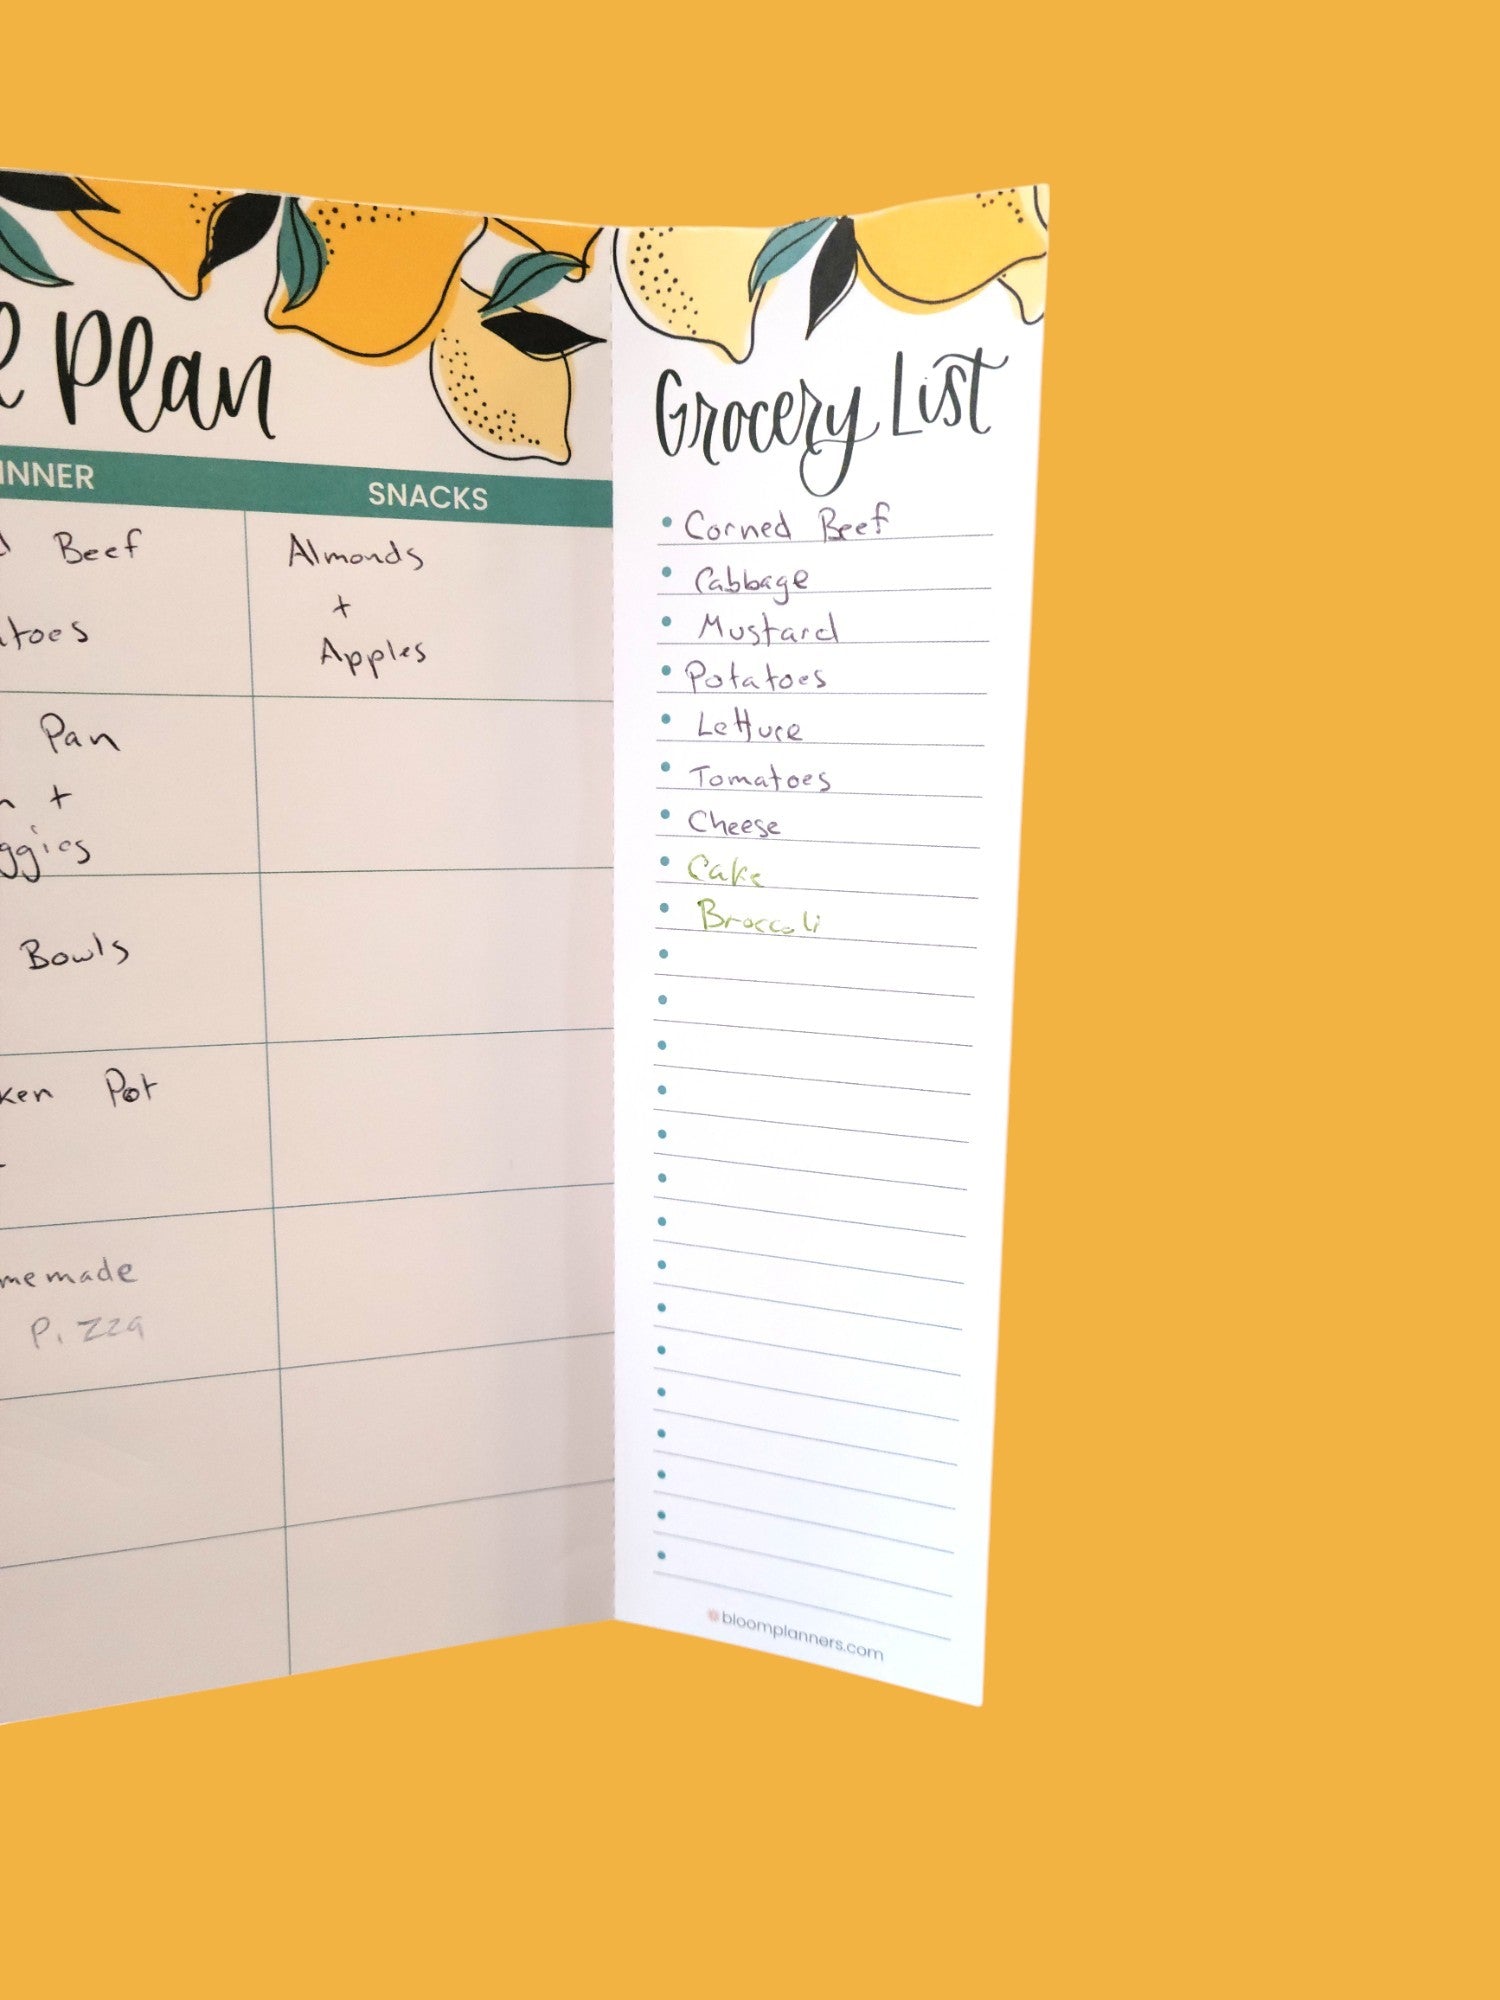 Plan
INNER
SNACKS
Beef
toes
Pan
+
ggies
Bowls
ken Pot
memade
Pizza
Almonds
+
Apples
Grocery List
Corned Beef
Cabbage
Mustard
Potatoes
Lettuce
Tomatoes
Cheese
Cake
Broccoli
bloomplanners.com